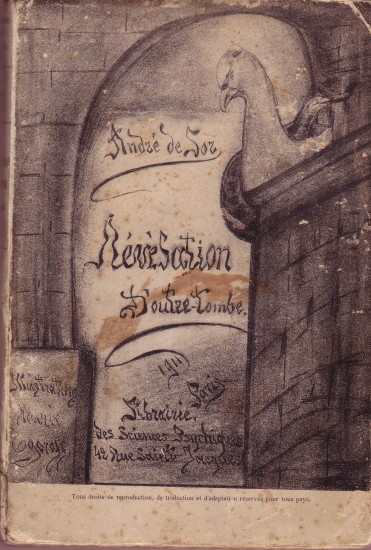 André de Sor
Révélation
D'outre-tombe.
1911
Paris.
Librairie
des Sciences Psychiques
42 Rue Saint Jacques
Illustrations
Tous droits de reproduction, de traduction et d'adaptation réservés pour tous pays.